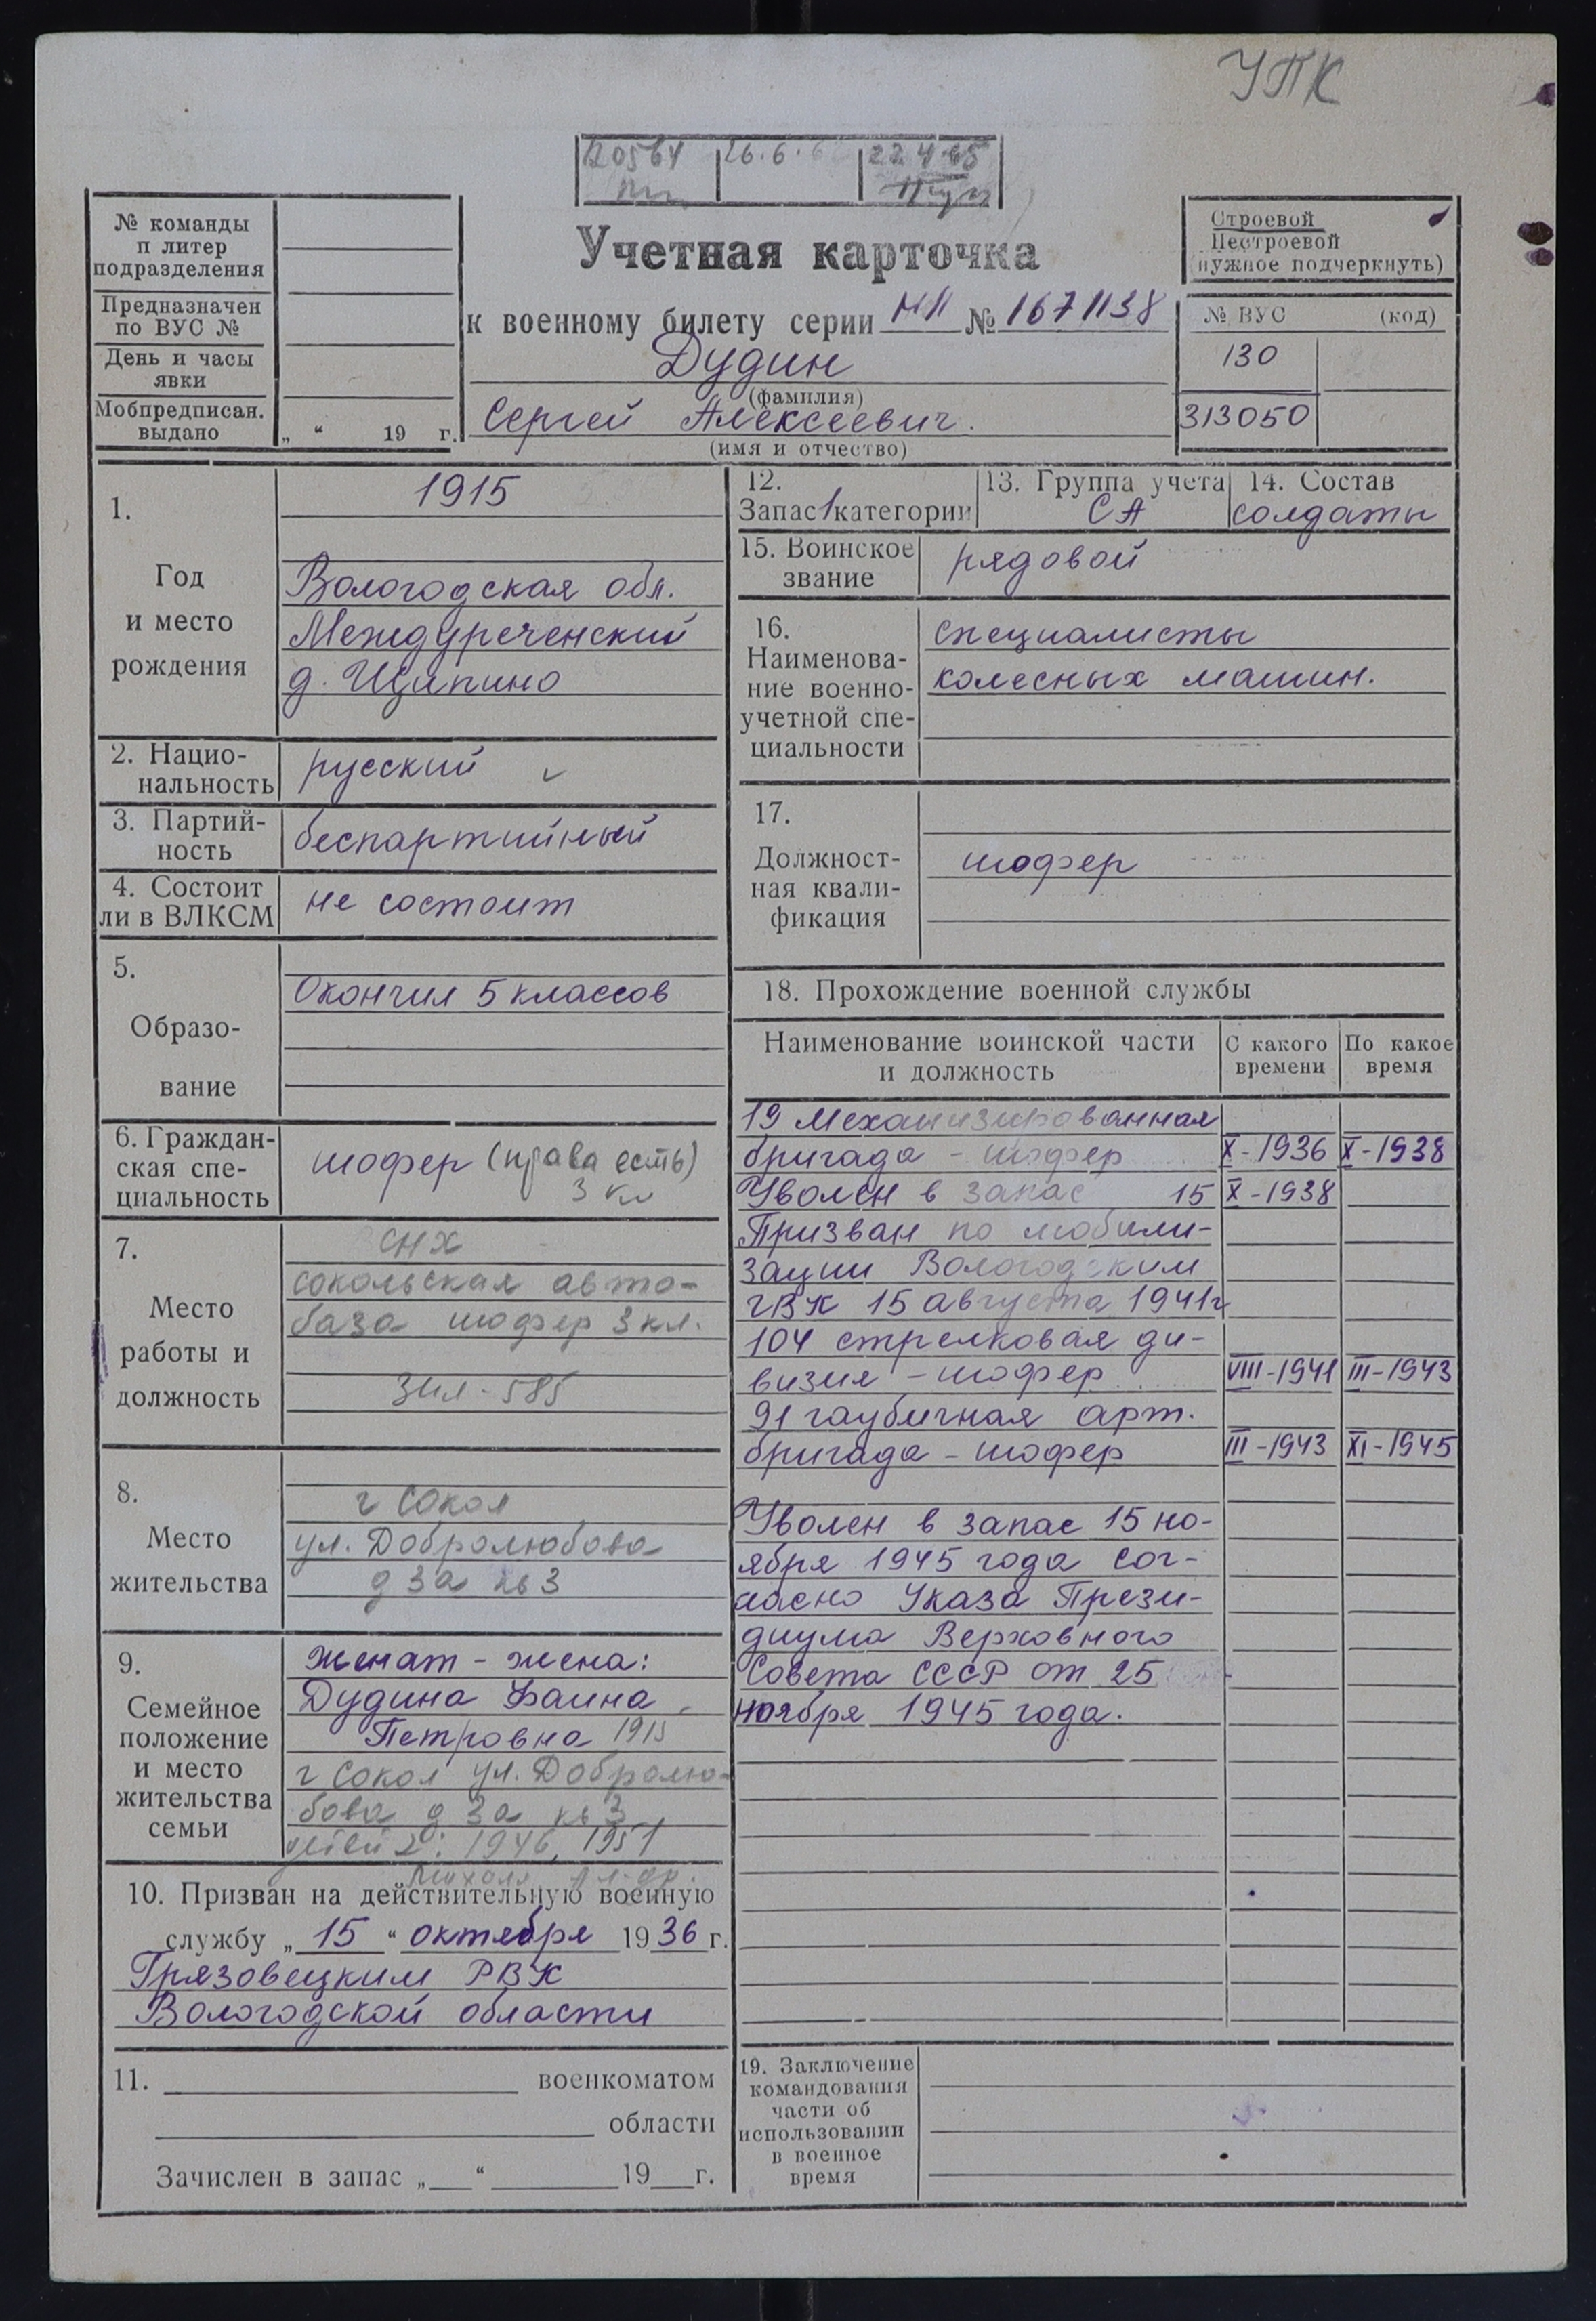 УПК
26.6.6
22.4.65
№ команды
п литер
подразделения
Предназначен
по ВУС №
День и часы
явки
Мобпредписан.
выдано
„ “ 19 г.
Учетная карточка
к военному билету серии НП № 1671138
Дудин
(фамилия)
Сергей Алексеевич.
(имя и отчество)
Строевой
Нестроевой
нужное подчеркнуть)
№ ВУС (код)
130
313050
1.
Год
и место
рождения
1915
Вологодская обл.
Междуреченский
д. Щипино
2. Нацио-
нальность
русский
3. Партий-
ность
беспартийный
4. Состоит
ли в ВЛКСМ
не состоит
5.
Образо-
вание
Окончил 5 классов
6. Граждан-
ская спе-
циальность
шофер (права есть)
3 кл
7.
Место
работы и
должность
СНХ
сокольская авто-
база шофер 3 кл.
ЗИЛ-585
8.
Место
жительства
г Сокол
ул. Добролюбова
д 3а кв 3
9.
Семейное
положение
и место
жительства
семьи
женат - жена:
Дудина Фаина
Петровна 1915
г Сокол ул. Добролю-
бова д 3а кв 3
детей 2: 1946, 1951
10. Призван на действительную военную
службу „ 15 “ октября 1936 г.
Грязовецким РВК
Вологодской области
11. военкоматом
области
Зачислен в запас „ “ 19 г.
12.
Запас 1 категории
13. Группа учета
СА
14. Состав
солдаты
15. Воинское
звание
рядовой
16.
Наименова-
ние военно-
учетной спе-
циальности
специалисты
колесных машин.
17.
Должност-
ная квали-
фикация
шофер
18. Прохождение военной службы
Наименование воинской части
и должность
С какого
времени
По какое
время
19 механизированная
бригада - шофер X-1936 X-1938
Уволен в запас 15 X-1938
Призван по мобили-
зации Вологодским
ГВК 15 августа 1941г
104 стрелковая ди-
визия - шофер VIII-1941 III-1943
91 гаубичная арт.
бригада - шофер III-1943 XI-1945
Уволен в запас 15 но-
ября 1945 года сог-
ласно Указа Прези-
диума Верховного
Совета СССР от 25
ноября 1945 года.
19. Заключение
командования
части об
использовании
в военное
время